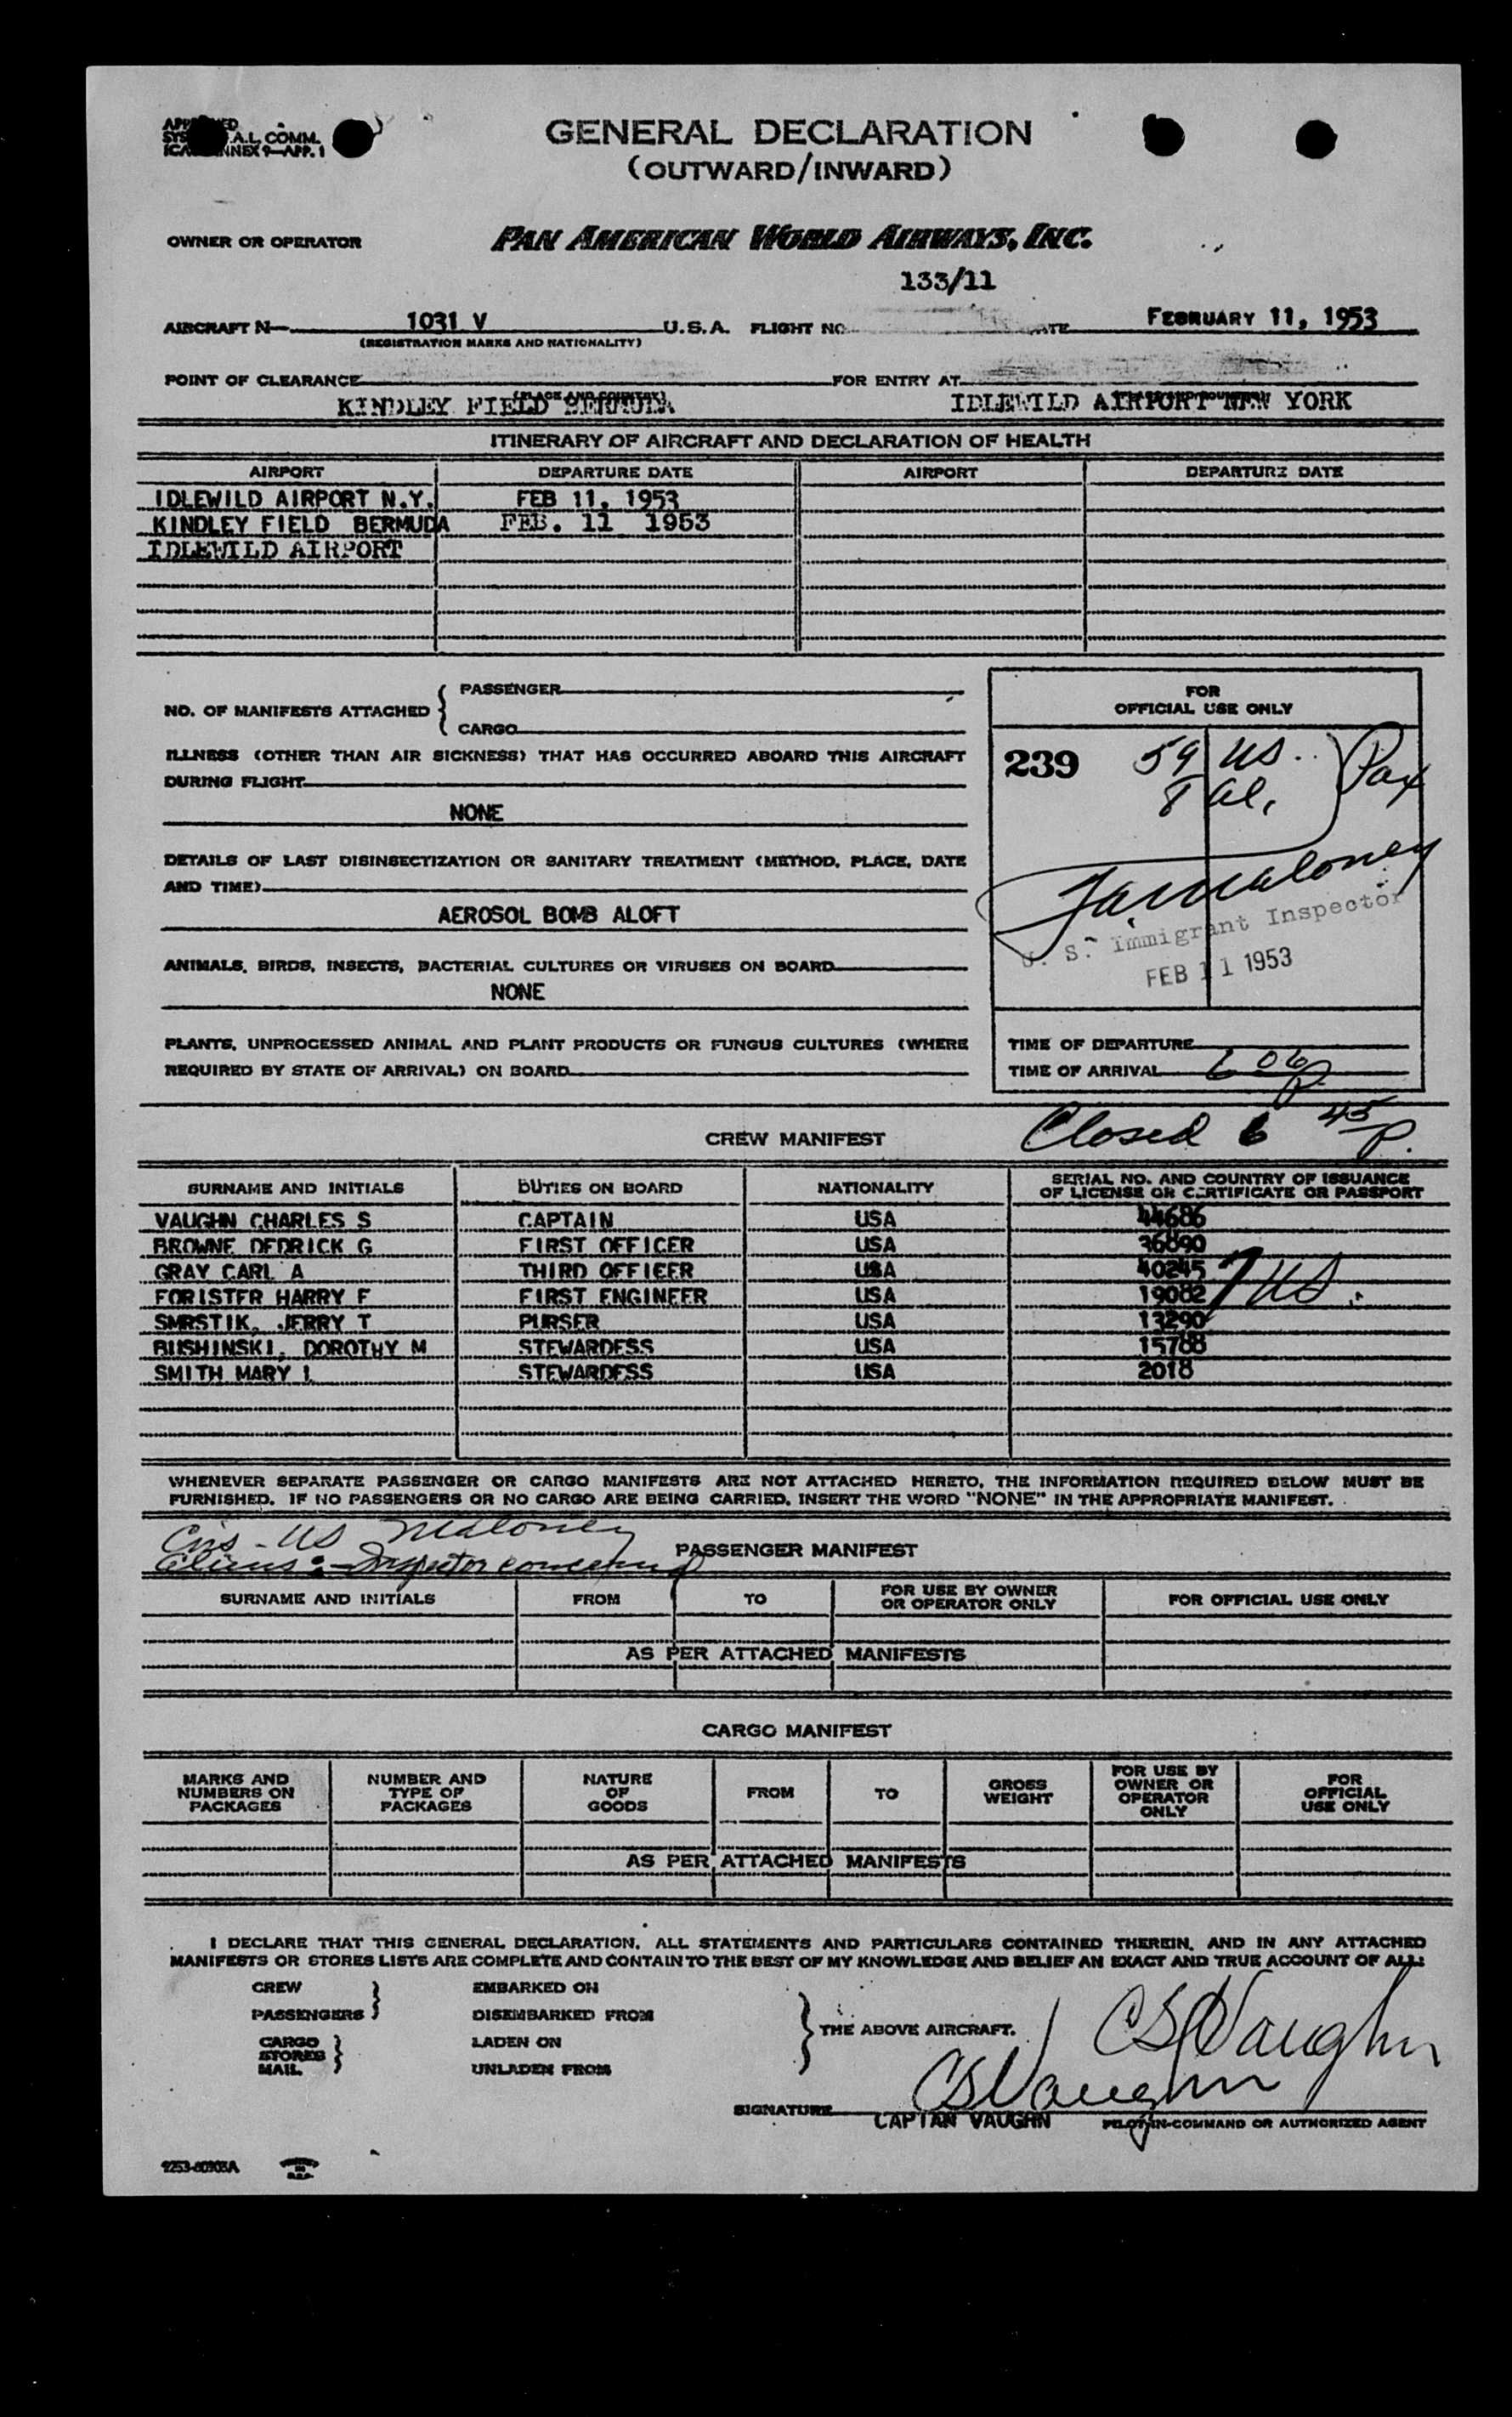 GENERAL DECLARATION
(OUTWARD/INWARD)
A.L. COMM.
ANNEX 9—APP. 1
OWNER OR OPERATOR PAN AMERICAN WORLD AIRWAYS, INC.
133/11
AIRCRAFT N— 1031 V U.S.A. FLIGHT NO. FEBRUARY 11, 1953
(REGISTRATION MARKS AND NATIONALITY)
POINT OF CLEARANCE FOR ENTRY AT
KINDLEY FIELD BERMUDA IDLEWILD AIRPORT NEW YORK
ITINERARY OF AIRCRAFT AND DECLARATION OF HEALTH
AIRPORT DEPARTURE DATE AIRPORT DEPARTURE DATE
IDLEWILD AIRPORT N.Y. FEB 11, 1953
KINDLEY FIELD BERMUDA FEB. 11 1953
IDLEWILD AIRPORT
NO. OF MANIFESTS ATTACHED { PASSENGER
CARGO
ILLNESS (OTHER THAN AIR SICKNESS) THAT HAS OCCURRED ABOARD THIS AIRCRAFT
DURING FLIGHT
NONE
DETAILS OF LAST DISINSECTIZATION OR SANITARY TREATMENT (METHOD, PLACE, DATE
AND TIME)
AEROSOL BOMB ALOFT
ANIMALS, BIRDS, INSECTS, BACTERIAL CULTURES OR VIRUSES ON BOARD
NONE
PLANTS, UNPROCESSED ANIMAL AND PLANT PRODUCTS OR FUNGUS CULTURES (WHERE
REQUIRED BY STATE OF ARRIVAL) ON BOARD
FOR
OFFICIAL USE ONLY
239 59 US. Pax
8 al.
Maloney
U. S. Immigrant Inspector
FEB 11 1953
TIME OF DEPARTURE
TIME OF ARRIVAL 6 06 P
Closed 6 45 P.
CREW MANIFEST
SURNAME AND INITIALS DUTIES ON BOARD NATIONALITY SERIAL NO. AND COUNTRY OF ISSUANCE
OF LICENSE OR CERTIFICATE OR PASSPORT
VAUGHN CHARLES S CAPTAIN USA 44686
BROWNE DEDRICK G FIRST OFFICER USA 36890
GRAY CARL A THIRD OFFICER USA 40245
FORISTER HARRY F FIRST ENGINEER USA 19082
SMRSTIK, JERRY T PURSER USA 13290
BUSHINSKI, DOROTHY M STEWARDESS USA 15788
SMITH MARY L STEWARDESS USA 2018
7 US.
WHENEVER SEPARATE PASSENGER OR CARGO MANIFESTS ARE NOT ATTACHED HERETO, THE INFORMATION REQUIRED BELOW MUST BE
FURNISHED. IF NO PASSENGERS OR NO CARGO ARE BEING CARRIED, INSERT THE WORD "NONE" IN THE APPROPRIATE MANIFEST.
US Maloney
Aliens: - Inspector concerned
PASSENGER MANIFEST
SURNAME AND INITIALS FROM TO FOR USE BY OWNER
OR OPERATOR ONLY FOR OFFICIAL USE ONLY
AS PER ATTACHED MANIFESTS
CARGO MANIFEST
MARKS AND
NUMBERS ON
PACKAGES
NUMBER AND
TYPE OF
PACKAGES
NATURE
OF
GOODS
FROM
TO
GROSS
WEIGHT
FOR USE BY
OWNER OR
OPERATOR
ONLY
FOR
OFFICIAL
USE ONLY
AS PER ATTACHED MANIFESTS
I DECLARE THAT THIS GENERAL DECLARATION, ALL STATEMENTS AND PARTICULARS CONTAINED THEREIN, AND IN ANY ATTACHED
MANIFESTS OR STORES LISTS ARE COMPLETE AND CONTAIN TO THE BEST OF MY KNOWLEDGE AND BELIEF AN EXACT AND TRUE ACCOUNT OF ALL:
CREW EMBARKED ON
PASSENGERS DISEMBARKED FROM
THE ABOVE AIRCRAFT.
CARGO LADEN ON
STORES
MAIL UNLADEN FROM
CS Vaughn
CS Vaughn
SIGNATURE CAPTAN VAUGHN PILOT-IN-COMMAND OR AUTHORIZED AGENT